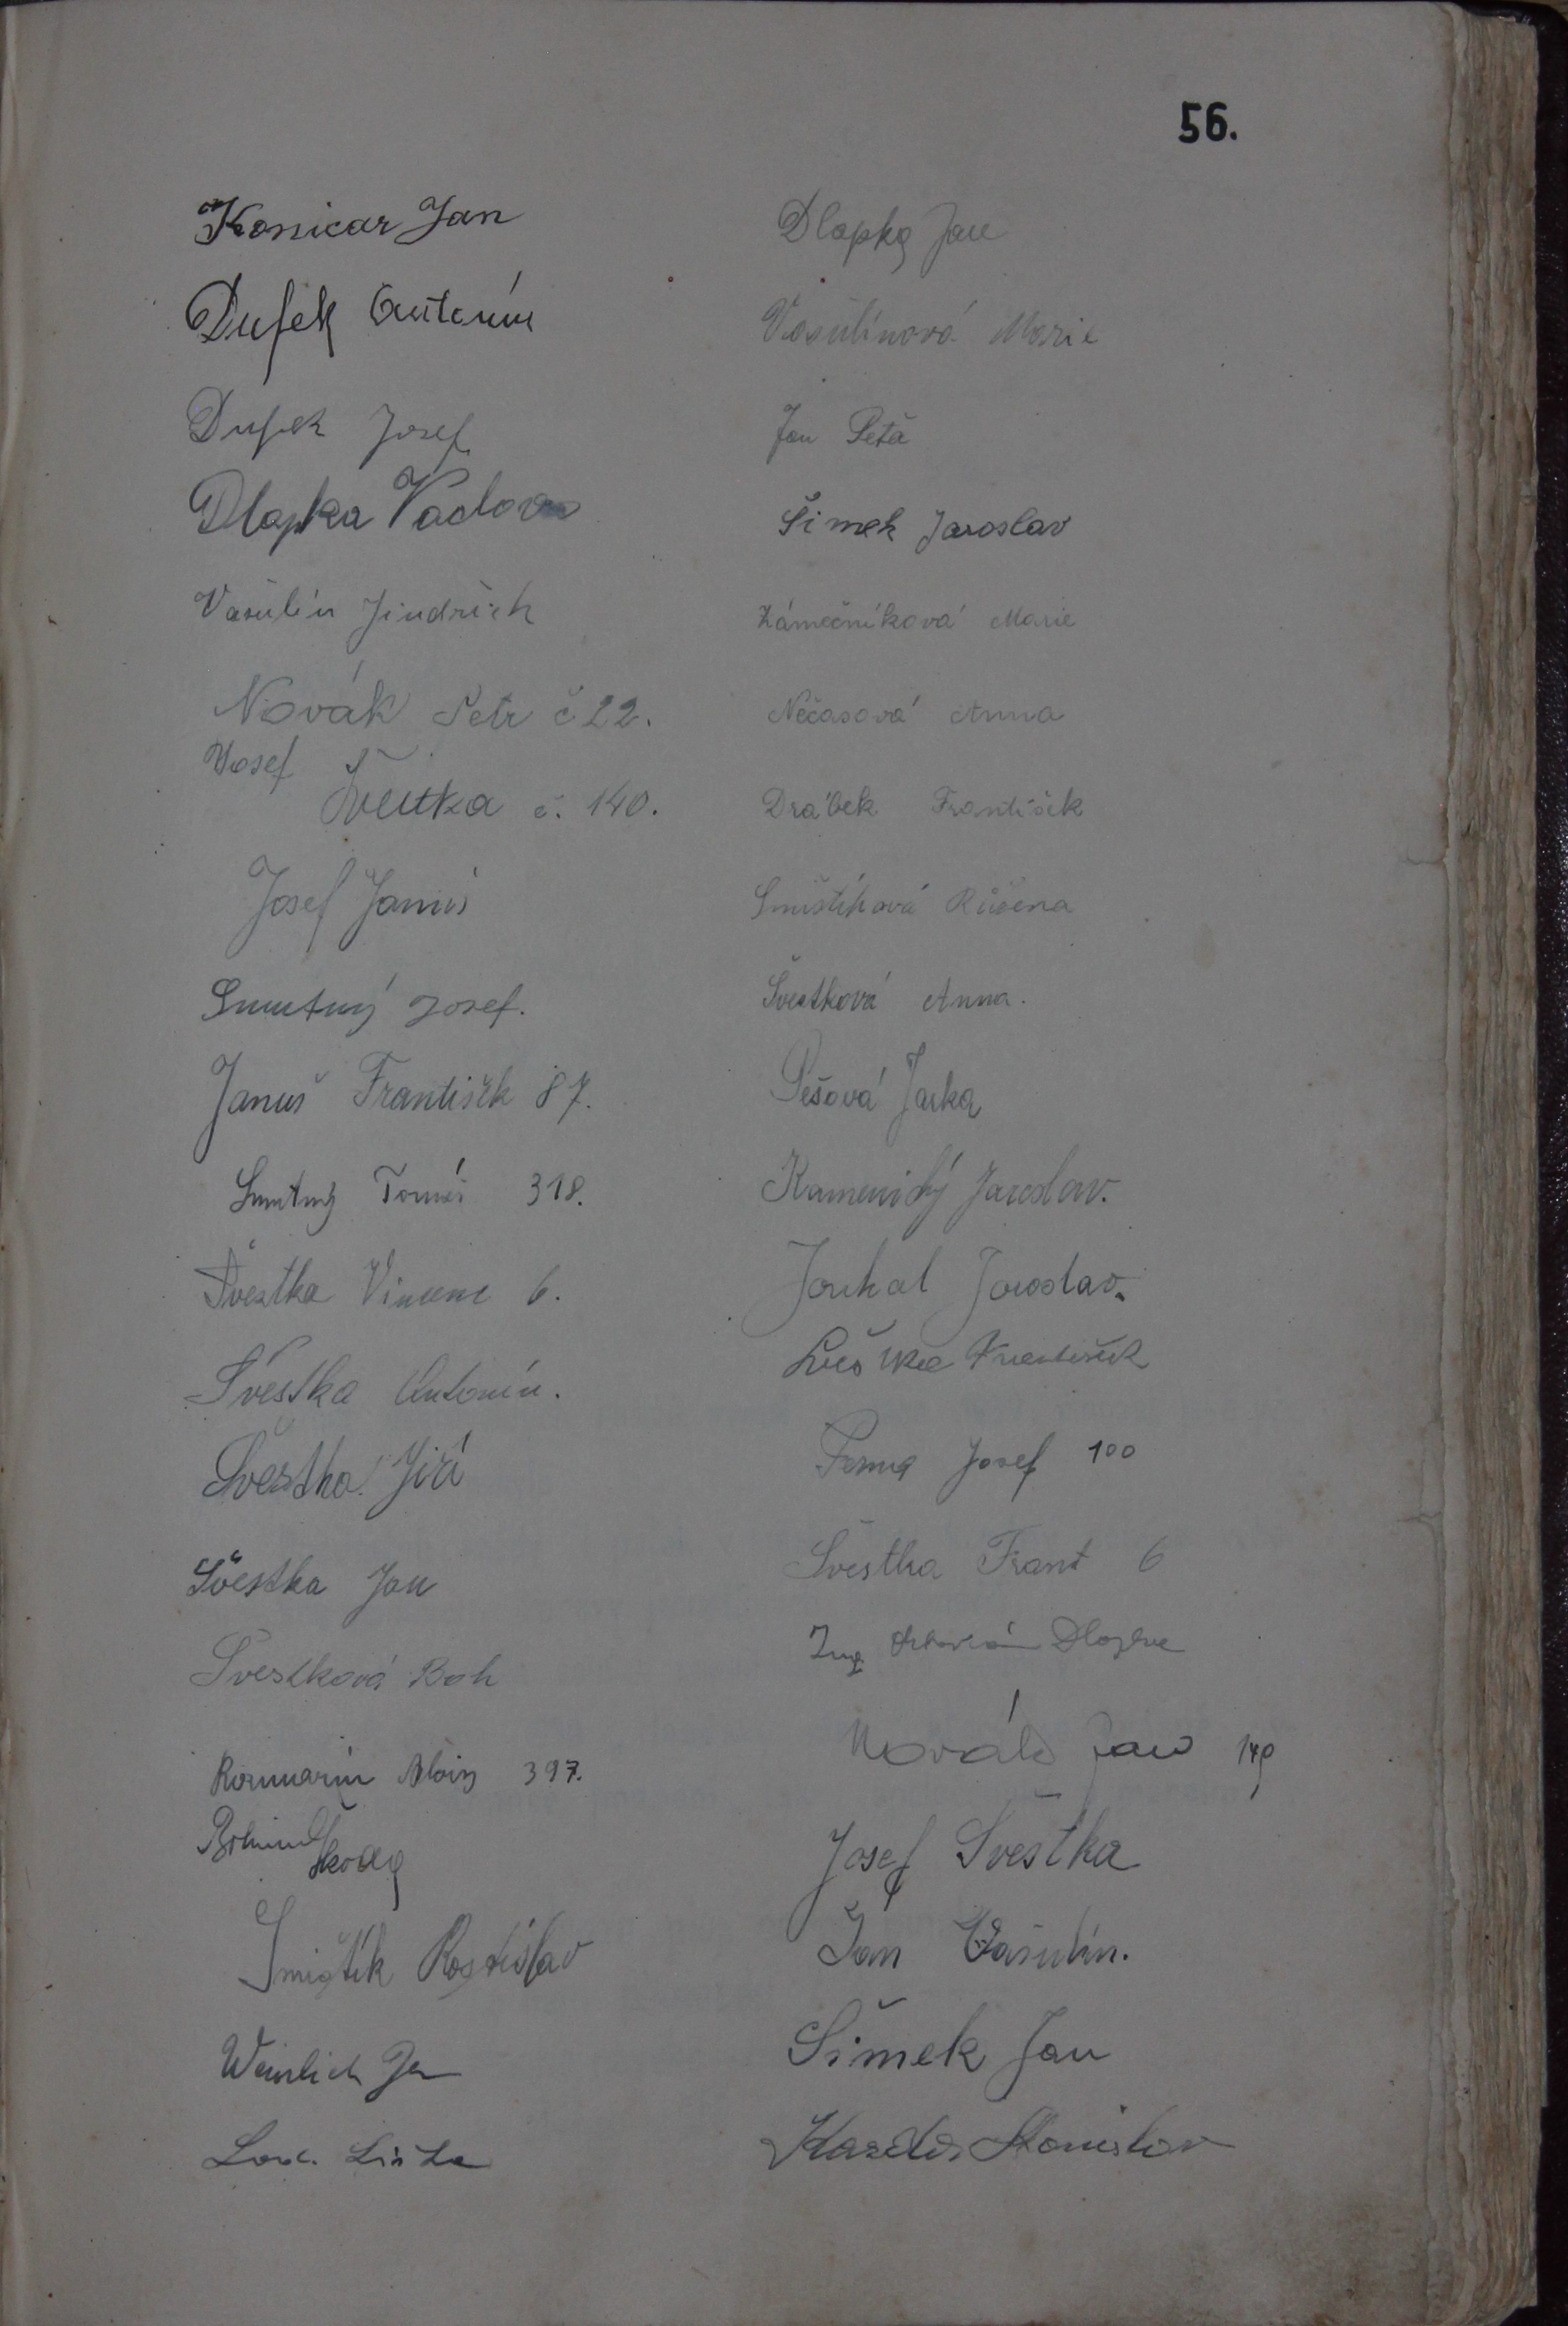 56.
Konicar Jan
Dufek Antonín
Dufek Josef
Dlapka Václav
Vašulín Jindřich
Novák Petr č 22.
Josef
Švestka č. 140.
Josef Januš
Smutný Josef.
Januš František 87.
Smutný Tomáš 318.
Švestka Vincenc 6.
Švestka Antonín.
Švestka Jiří
Švestka Jan
Švestková Boh
Rozmarin Alois 397.
Škoda
Smištík Rostislav
Weinlich Jan
Liška
Dlapka Jan
Vašulínová Marie
Jan Peťa
Šimek Jaroslav
Zámečníková Marie
Nečasová Anna
Drábek František
Smištíková Růžena
Švestková Anna.
Pešová Jarka
Kamenický Jaroslav.
Jouhal Jaroslav.
František
Josef 100
Švestka Frant 6
Ing Dlapka
Novák Jan
Josef Švestka
Jan Vašulín.
Šimek Jan
Stanislav